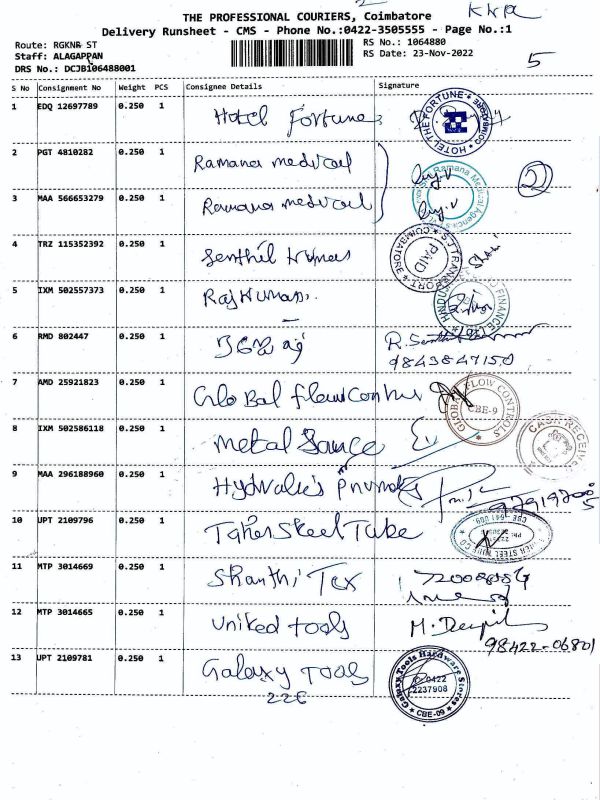 KKR
THE PROFESSIONAL COURIERS, Coimbatore
Delivery Runsheet - CMS - Phone No.:0422-3505555 - Page No.:1
Route: RGKNR ST
RS No.: 1064880
Staff: ALAGAPPAN
RS Date: 23-Nov-2022
5
DRS No.: DCJB106488001
S No Consignment No Weight PCS Consignee Details Signature
1 EDQ 12697789 0.250 1 Hotel Fortune
HOTEL THE FORTUNE
2 PGT 4810282 0.250 1 Ramana medical
2
3 MAA 566653279 0.250 1 Ramana medical
Ramana Medical Agencies
4 TRZ 115352392 0.250 1 Senthil Kumar
S.J TRANSPORT COIMBATORE PAID
5 IXM 502557373 0.250 1 Rajkumar
FINANCE
6 RMD 802447 0.250 1
9843847150
7 AMD 25921823 0.250 1 Global flow control
GLOBAL FLOW CONTROLS CBE-9
8 IXM 502586118 0.250 1 metal Sance
CASH RECEIVED
9 MAA 296188960 0.250 1
10 UPT 2109796 0.250 1 Taher Steel Tube
11 MTP 3014669 0.250 1 Shanthi Tex
12 MTP 3014665 0.250 1 United tools
98422-06801
13 UPT 2109781 0.250 1 Galaxy Tools
Galaxy Tools Hardware Stores 0422 2237908 CBE-09